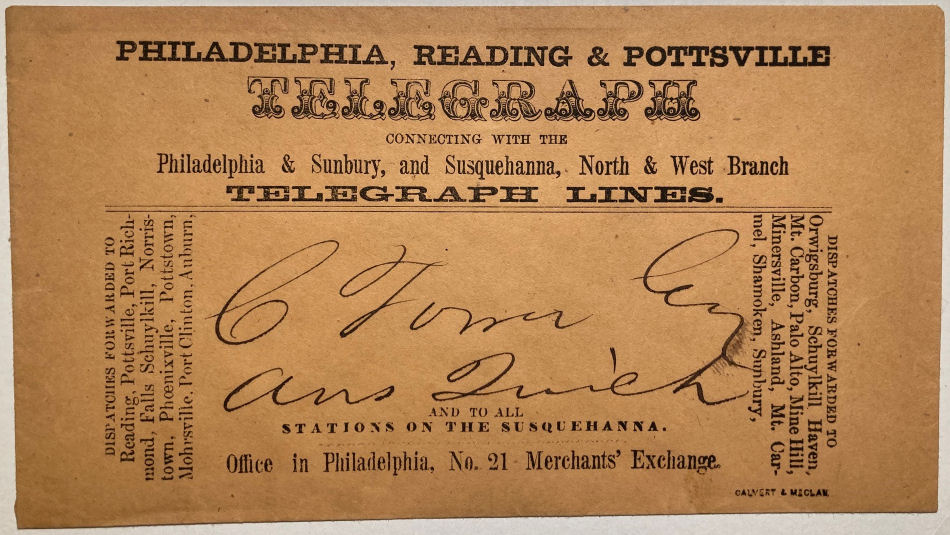 PHILADELPHIA, READING & POTTSVILLE
TELEGRAPH
CONNECTING WITH THE
Philadelphia & Sunbury, and Susquehanna, North & West Branch
TELEGRAPH LINES.
DISPATCHES FORWARDED TO
Reading, Pottsville, Port Rich-
mond, Falls Schuylkill, Norris-
town, Phœnixville, Pottstown,
Mohrsville, Port Clinton, Auburn,
C Tower Esq
Ans Quick
DISPATCHES FORWARDED TO
Orwigsburg, Schuylkill Haven,
Mt. Carbon, Palo Alto, Mine Hill,
Minersville, Ashland, Mt. Car-
mel, Shamoken, Sunbury,
AND TO ALL
STATIONS ON THE SUSQUEHANNA.
Office in Philadelphia, No. 21 Merchants' Exchange.
CALVERT & MECLAN.